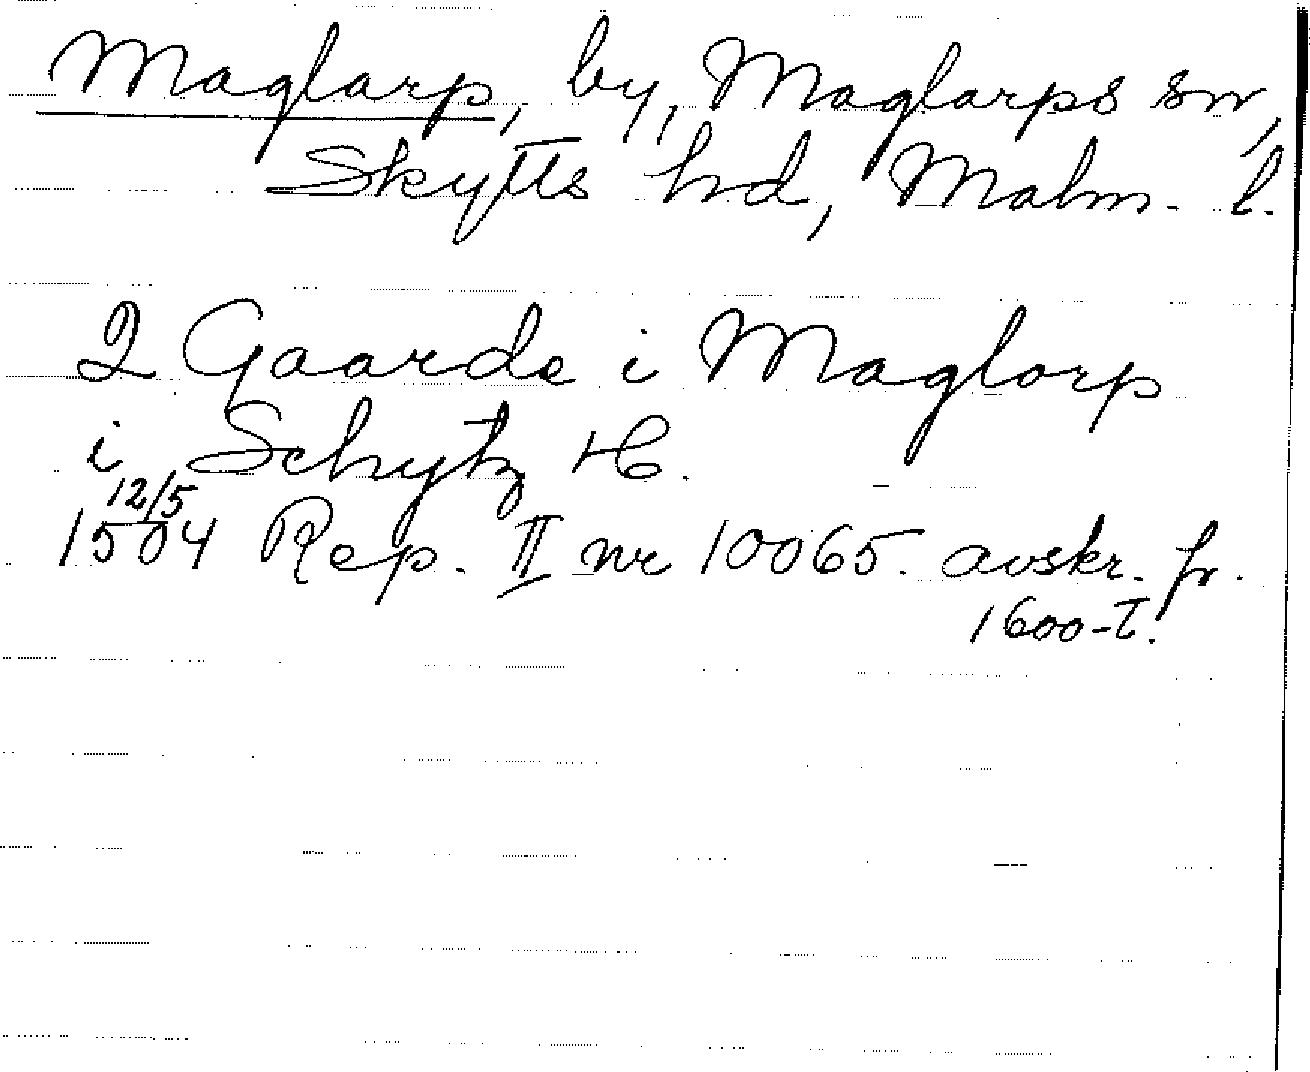 Maglarp, by, Maglarps sn,
Skytts hd, Malm. l.
2 Gaarde i Maglorp
i Schytz H.
12/5
1504 Rep. II nr 10065. avskr. fr.
1600-t.